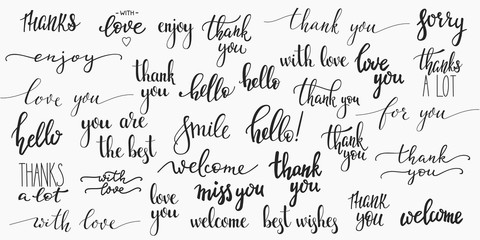 thanks
with
love
enjoy
thank
you
thank you
sorry
enjoy
thank
you
hello
hello
with love
love
you
thanks
A LOT
love you
thank you
for you
hello
you are
the best
smile
hello!
thank
you
thank
you
THANKS
a lot
with
love
welcome
thank
you
love
you
miss you
with love
welcome
best wishes
thank
you
welcome